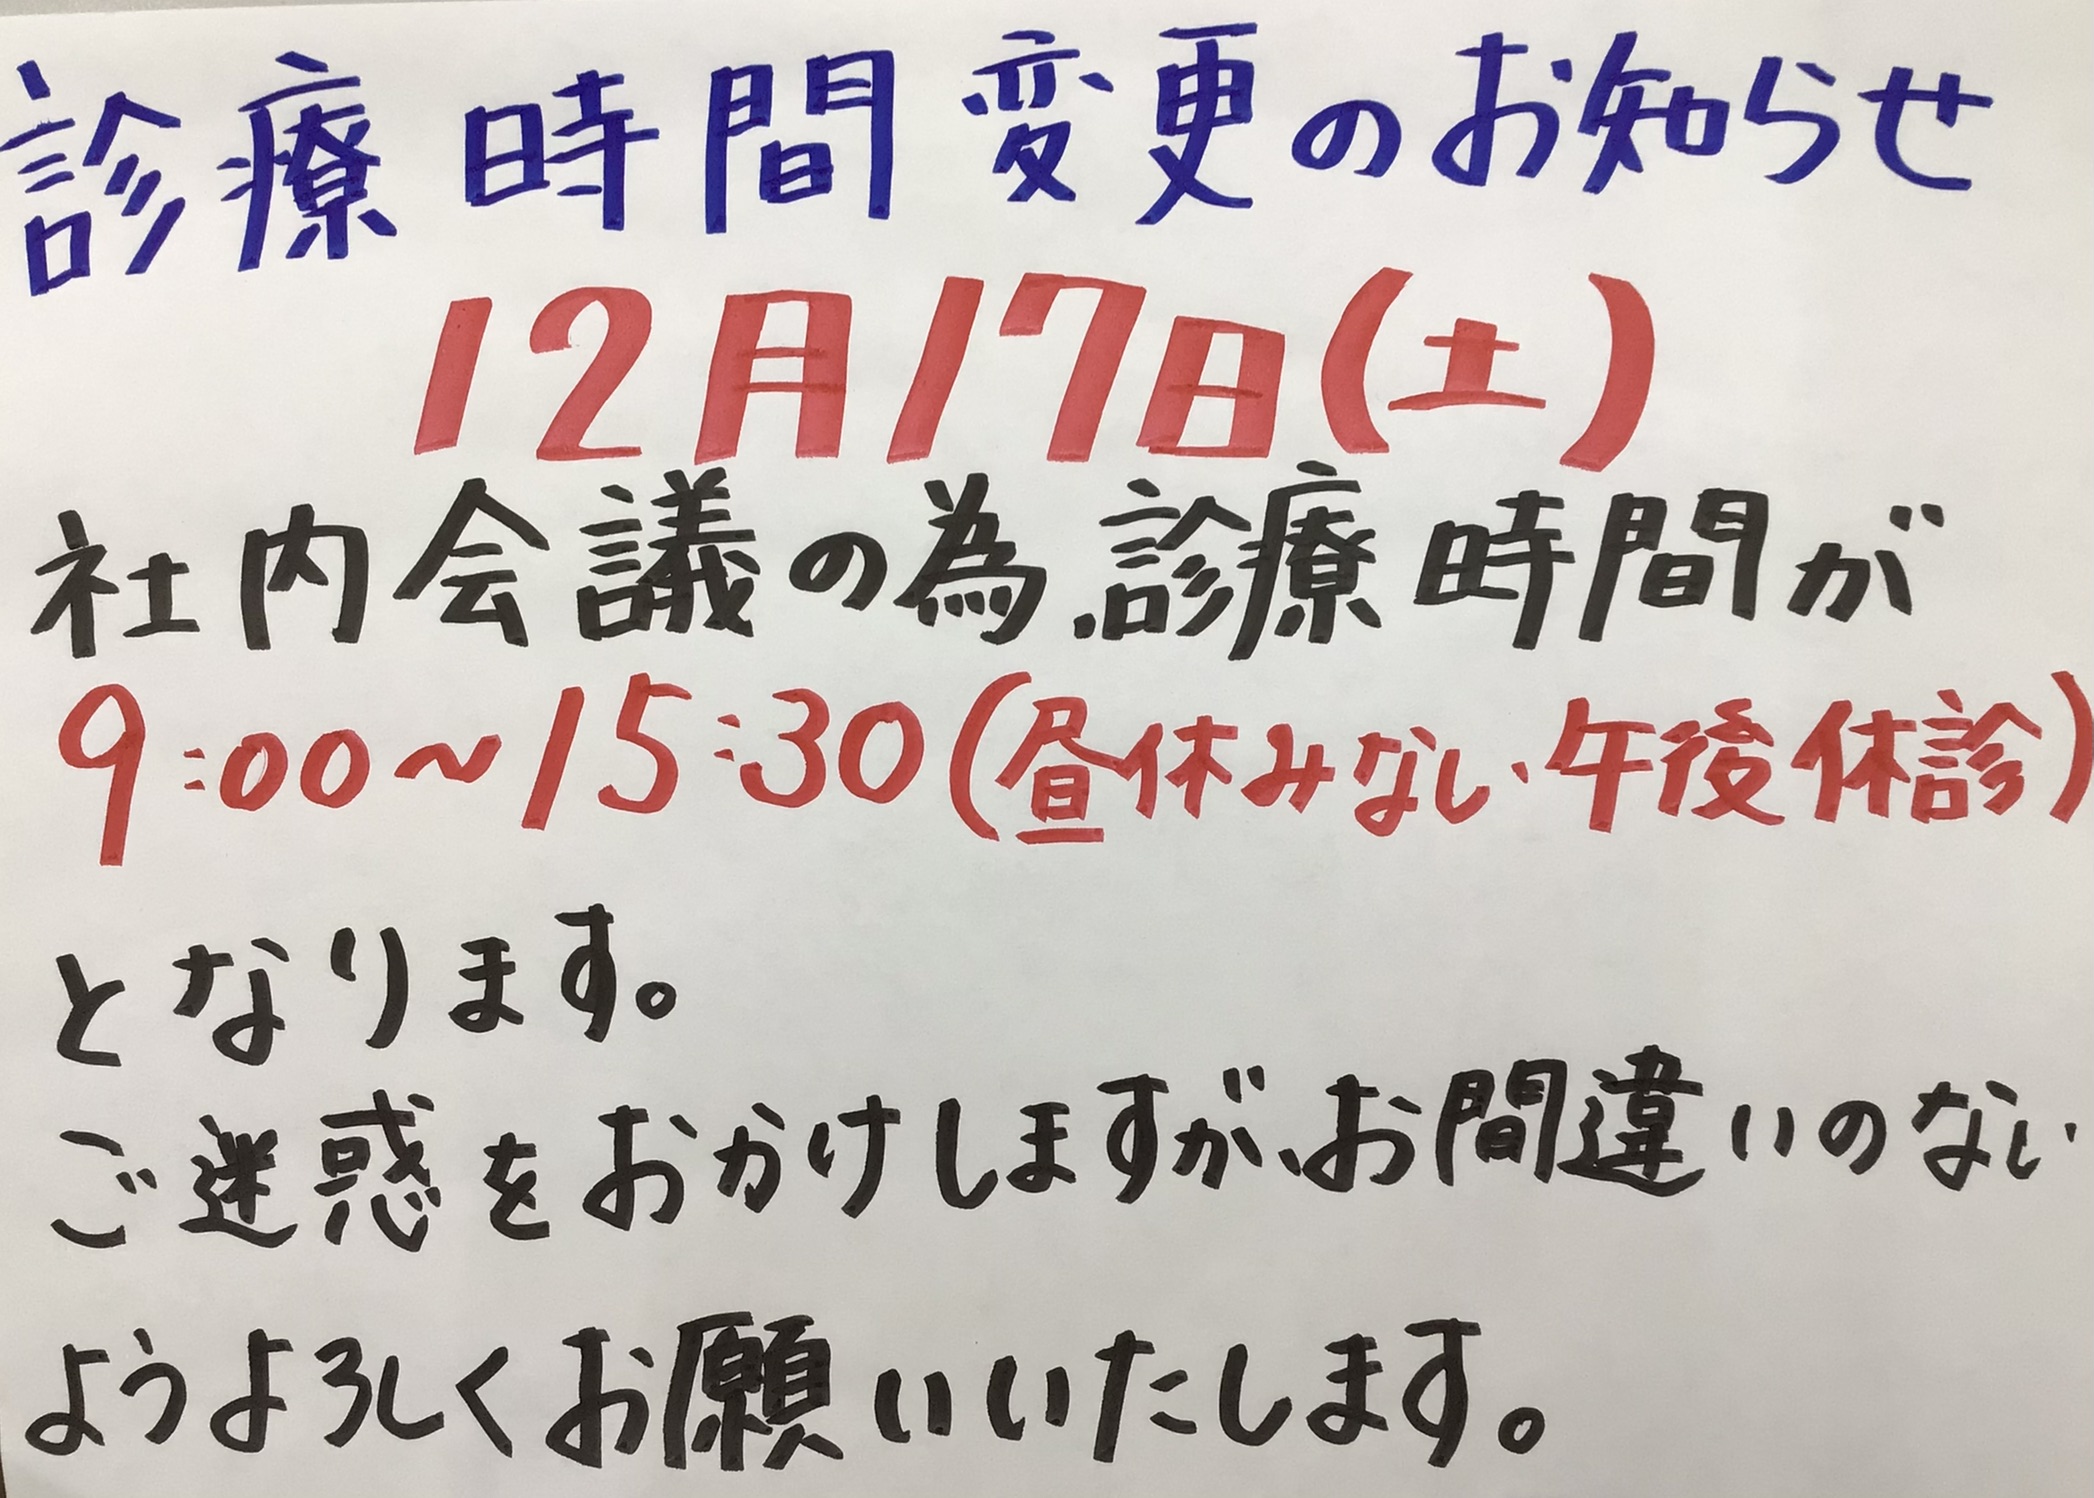 診療時間変更のお知らせ
12月17日(土)
社内会議の為、診療時間が
9:00~15:30(昼休みなし、午後休診)
となります。
ご迷惑をおかけしますが、お間違いのない
ようよろしくお願いいたします。